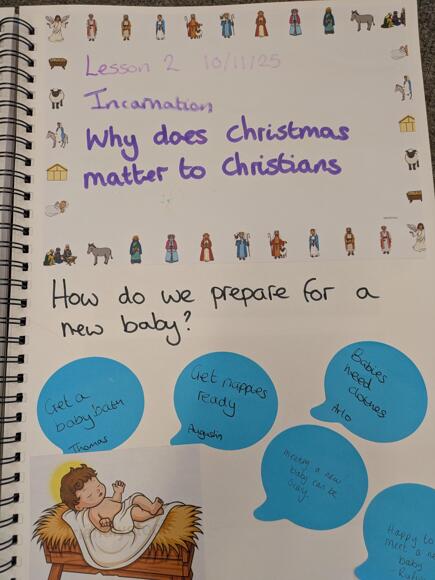 Lesson 2 10/11/25
Incarnation
Why does christmas
matter to Christians
How do we prepare for a
new baby?
Get a
baby bath
Thomas
Get nappies
ready
Augustin
Babies
need
clothes
Arlo
meeting a new
baby can be
Happy to
meet a new
baby